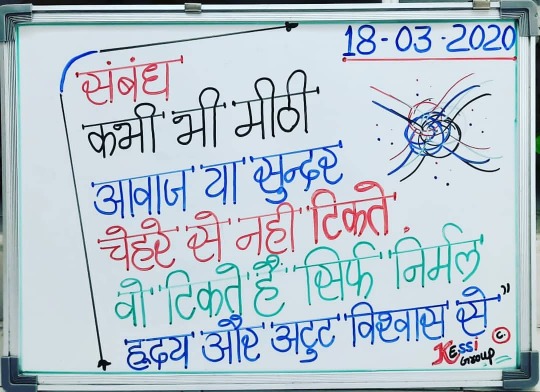 18-03-2020
संबंध
कभी भी मीठी
आवाज या सुन्दर
चेहरे से नही टिकते
वो टिकते है सिर्फ निर्मल
ह्रदय और अटुट विश्वास से"
KESSi
Group
C.